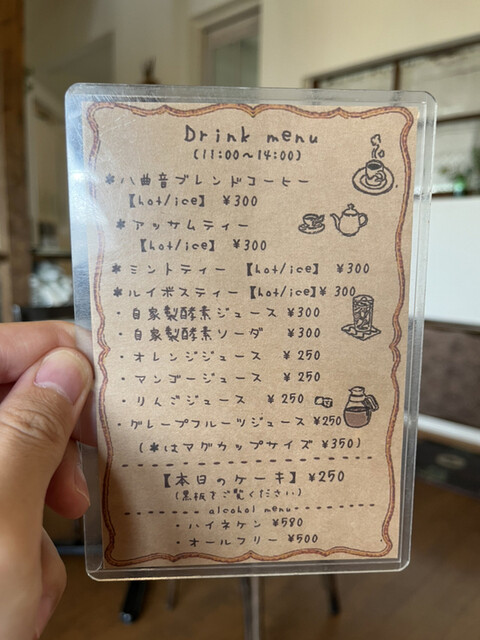 Drink menu
(11:00~14:00)
*八曲音ブレンドコーヒー
【hot/ice】 ¥300
*アッサムティー
【hot/ice】 ¥300
*ミントティー 【hot/ice】 ¥300
*ルイボスティー【hot/ice】¥300
・自家製酵素ジュース ¥300
・自家製酵素ソーダ ¥300
・オレンジジュース ¥250
・マンゴージュース ¥250
・りんごジュース ¥250
・グレープフルーツジュース ¥250
(*はマグカップサイズ ¥350)
【本日のケーキ】¥250
(黒板をご覧ください)
alcohol menu
・ハイネケン ¥580
・オールフリー ¥500